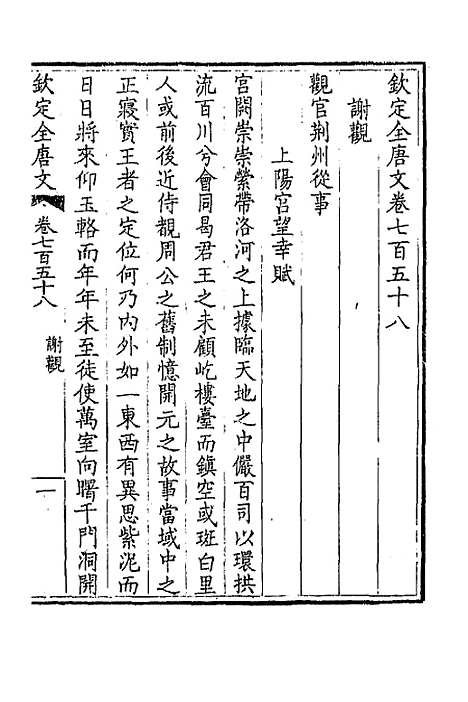 欽定全唐文卷七百五十八
謝觀
觀官荆州從事
上陽宮望幸賦
宮闕崇崇縈帶洛河之上據臨天地之中儼百司以環拱
流百川兮會同曷君王之未顧屹樓臺而鎮空或斑白里
人或前後近侍覩周公之舊制憶開元之故事當域中之
正寢實王者之定位何乃内外如一東西有異思紫泥而
日日將來仰玉輅而年年未至徒使萬室向曙千門洞開
欽定全唐文 卷七百五十八 謝觀 一